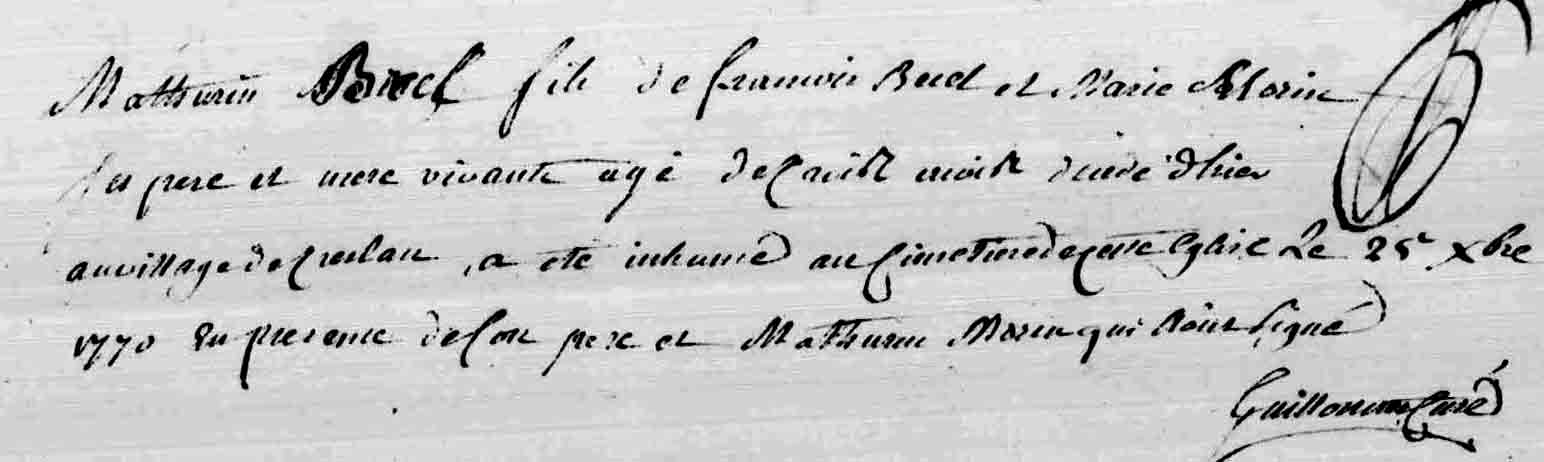 Mathurin Burel fils de francois Burel et Marie Morin
ses pere et mere vivants agé de mois décédé d'hier
au village de a été inhumé au cimetiere de cette Eglise Le 25e xbre
1770 En presence de son pere et Mathurin Morin qui n'ont signé
Guillonneau Curé